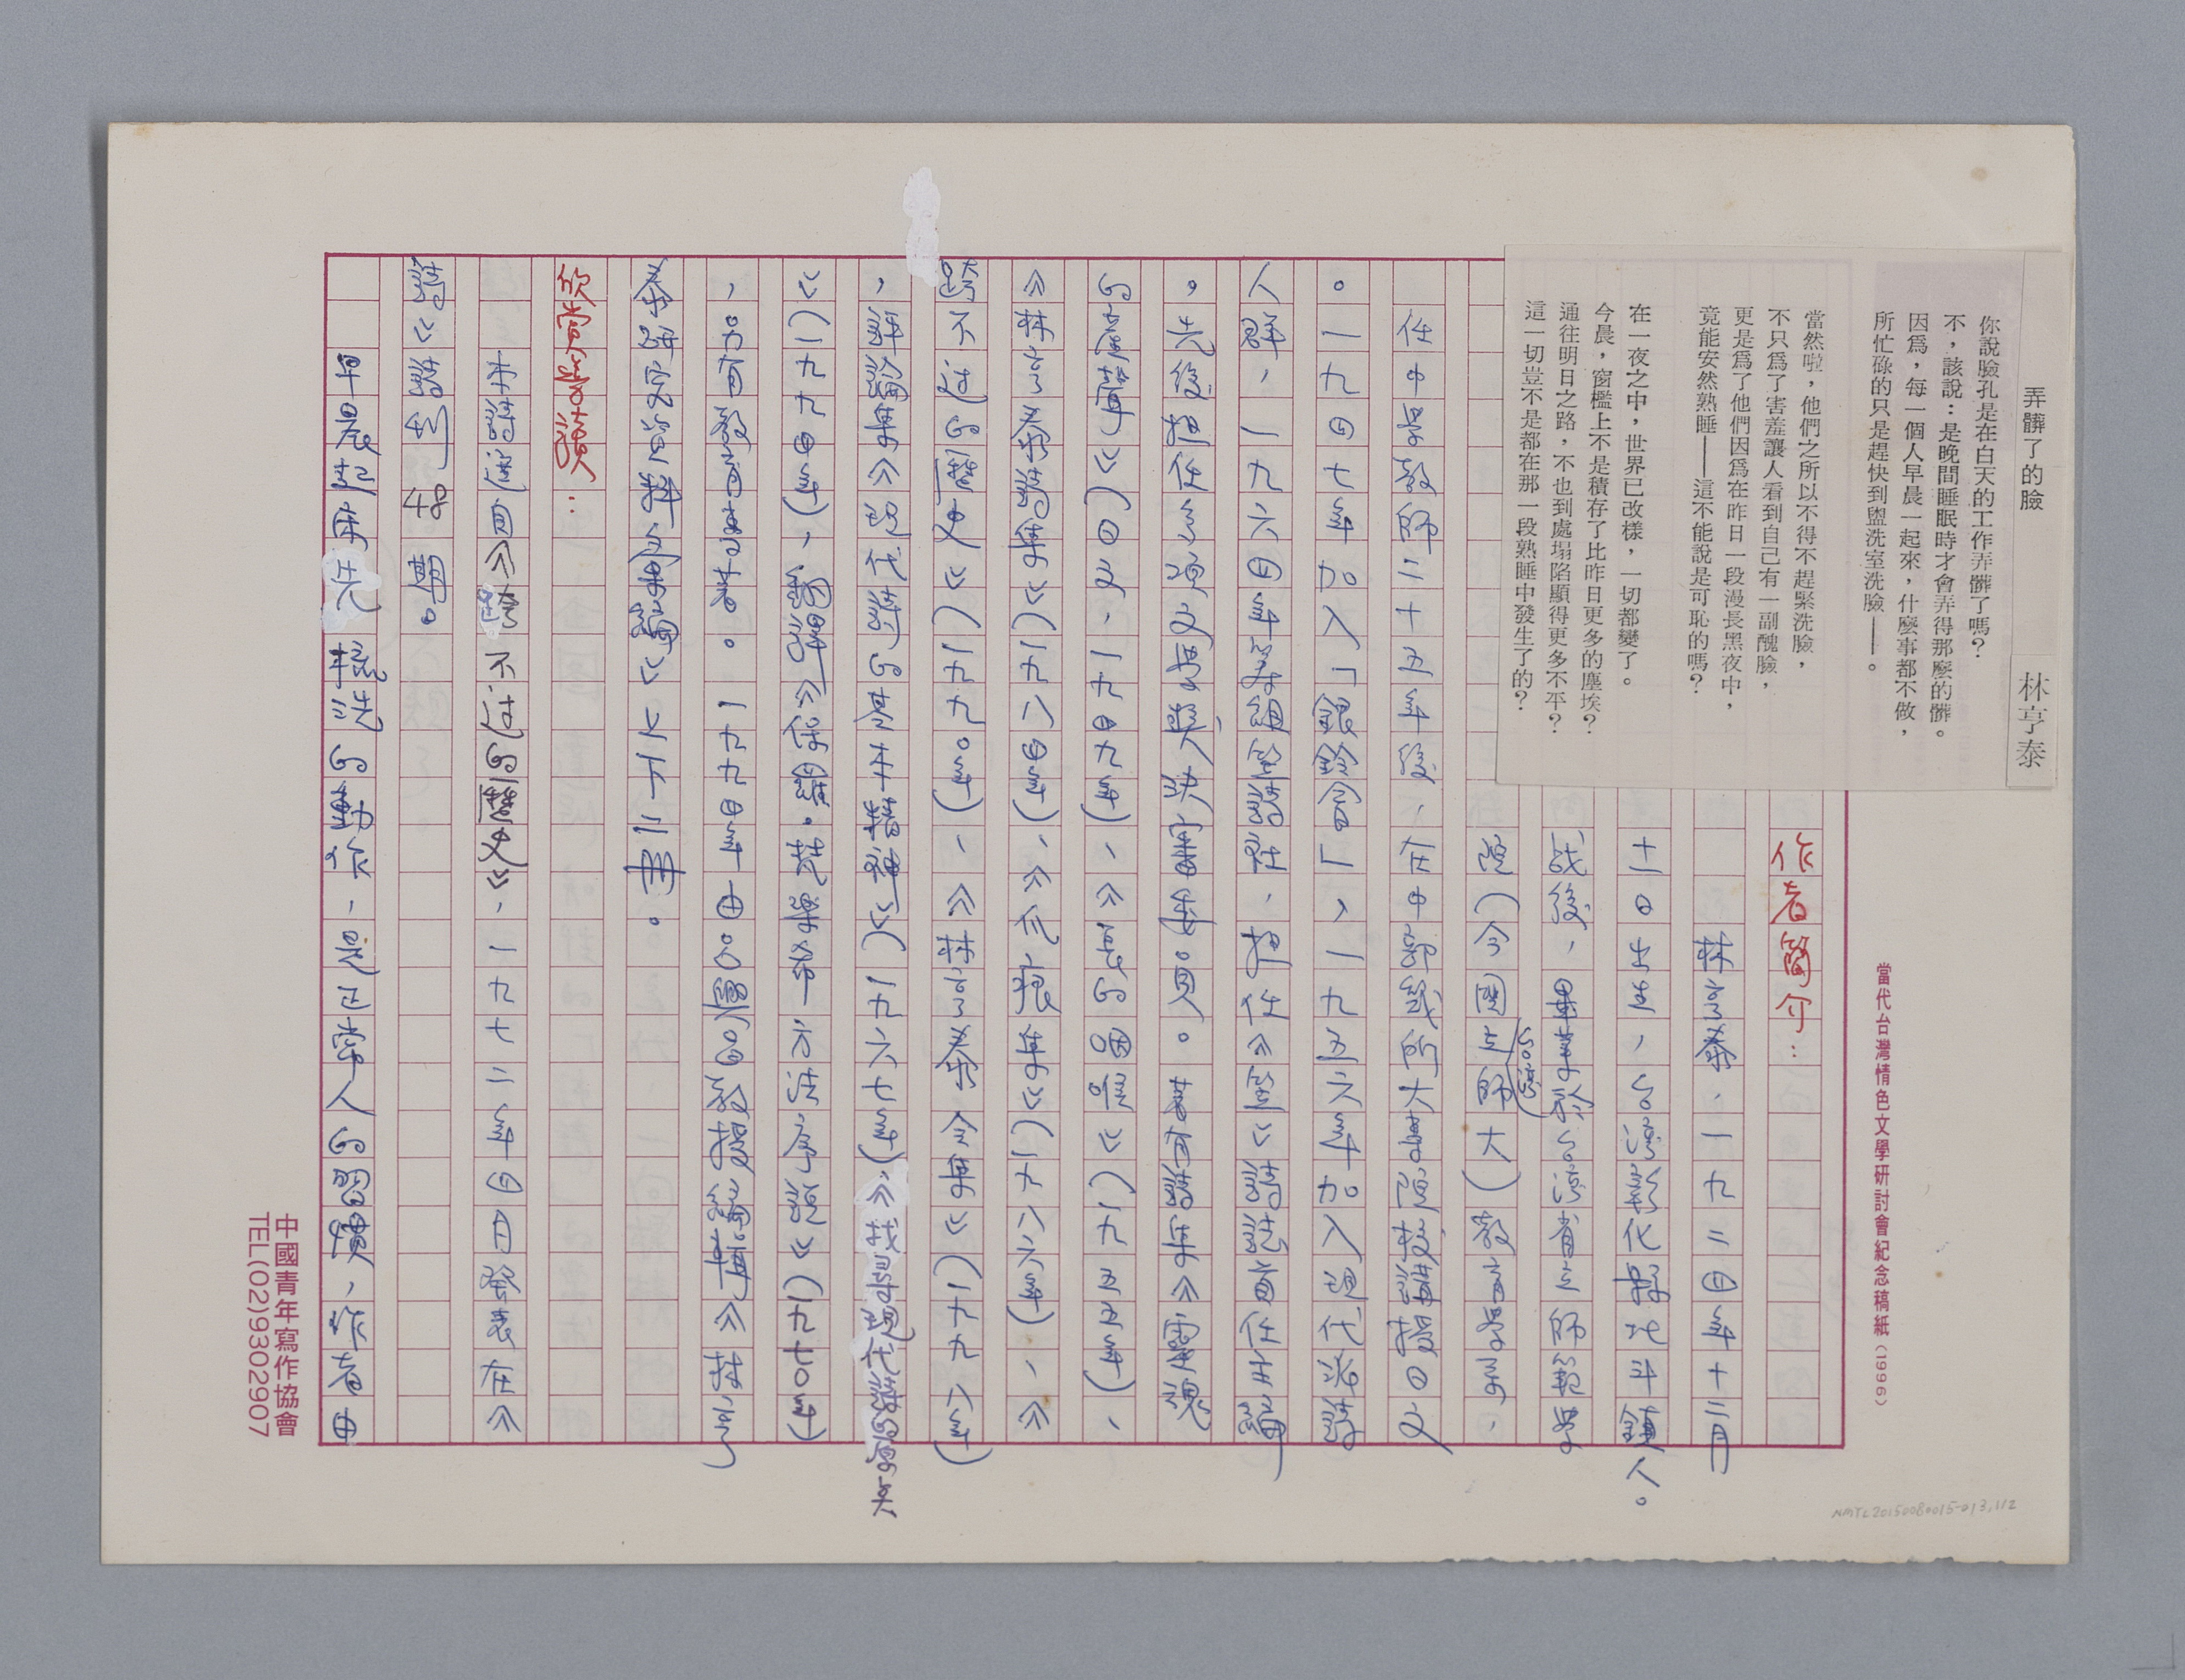 弄髒了的臉
林亨泰
你說臉孔是在白天的工作弄髒了嗎？
不，該說：是晚間睡眠時才會弄得那麼的髒。
因為，每一個人早晨一起來，什麼事都不做，
所忙碌的只是趕快到盥洗室洗臉——。
當然啦，他們之所以不得不趕緊洗臉，
不只為了害羞讓人看到自己有一副醜臉，
更是為了他們因為在昨日一段漫長黑夜中，
竟能安然熟睡——這不能說是可恥的嗎？
在一夜之中，世界已改樣，一切都變了。
今晨，窗檻上不是積存了比昨日更多的塵埃？
通往明日之路，不也到處塌陷顯得更多不平？
這一切豈不是都在那一段熟睡中發生了的？
當代台灣情色文學研討會紀念稿紙（1996）
作者簡介：
林亨泰，一九二四年十二月
十一日出生，台灣彰化縣北斗鎮人。
戰後，畢業於台灣省立師範學
院（今國立師大）教育學系，
（50級）
任中學教師二十五年後，在中部幾所大專院校講授日文
。一九四七年加入「銀鈴會」，一九五六年加入現代派詩
人群，一九六四年籌組笠詩社，擔任《笠》詩刊首任主編
。先後擔任各項文學獎決審委員。著有詩集《靈魂
的產聲》（日文，一九四九年）、《長的咽喉》（一九五五年）、
《林亨泰詩集》（一九八四年）、《爪痕集》（一九八六年）、《
跨不過的歷史》（一九九〇年）、《林亨泰全集》（一九九八年）
，評論集《現代詩的基本精神》（一九六八年）、《找尋現代詩的原點》
》（一九九四年），翻譯《保羅·梵樂希方法序說》（一九七〇年）
，另有教育論著。一九九四年由呂興昌教授編訂《林亨
泰研究資料彙編》上下二冊。
欣賞導讀：
本詩選自《跨不過的歷史》，一九七二年四月發表在《
詩》詩刊48期。
早晨起床先梳洗的動作，是正常人的習慣，作者由
中國青年寫作協會
TEL(02)9302907
NMTL20150080015-013,1/2